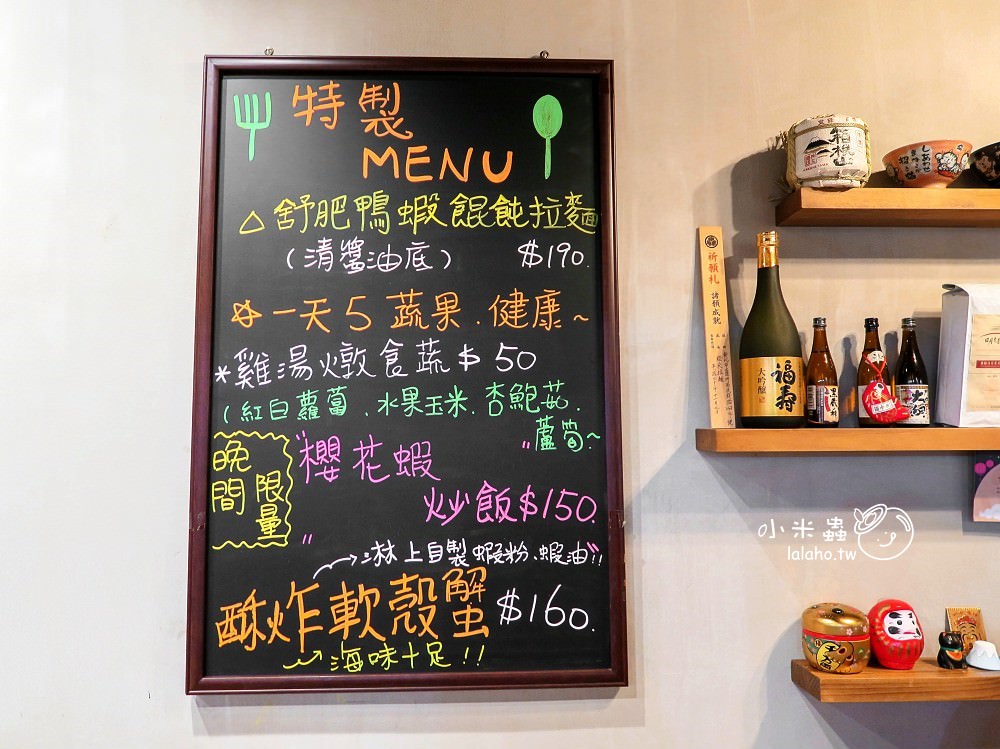 特製
MENU
△舒肥鴨蝦餛飩拉麵
(清醬油底) $190.
一天5蔬果.健康~
*雞湯燉食蔬$50
(紅白蘿蔔.水果玉米.杏鮑菇.
蘆筍~
晚間
限量
"櫻花蝦
炒飯$150.
"
淋上自製蝦粉、蝦油"!!
酥炸軟殼蟹$160.
海味十足!!
箱根山
しあわせ
祈願札
諸願成就
福寿
大吟醸
小米蟲
lalaho.tw